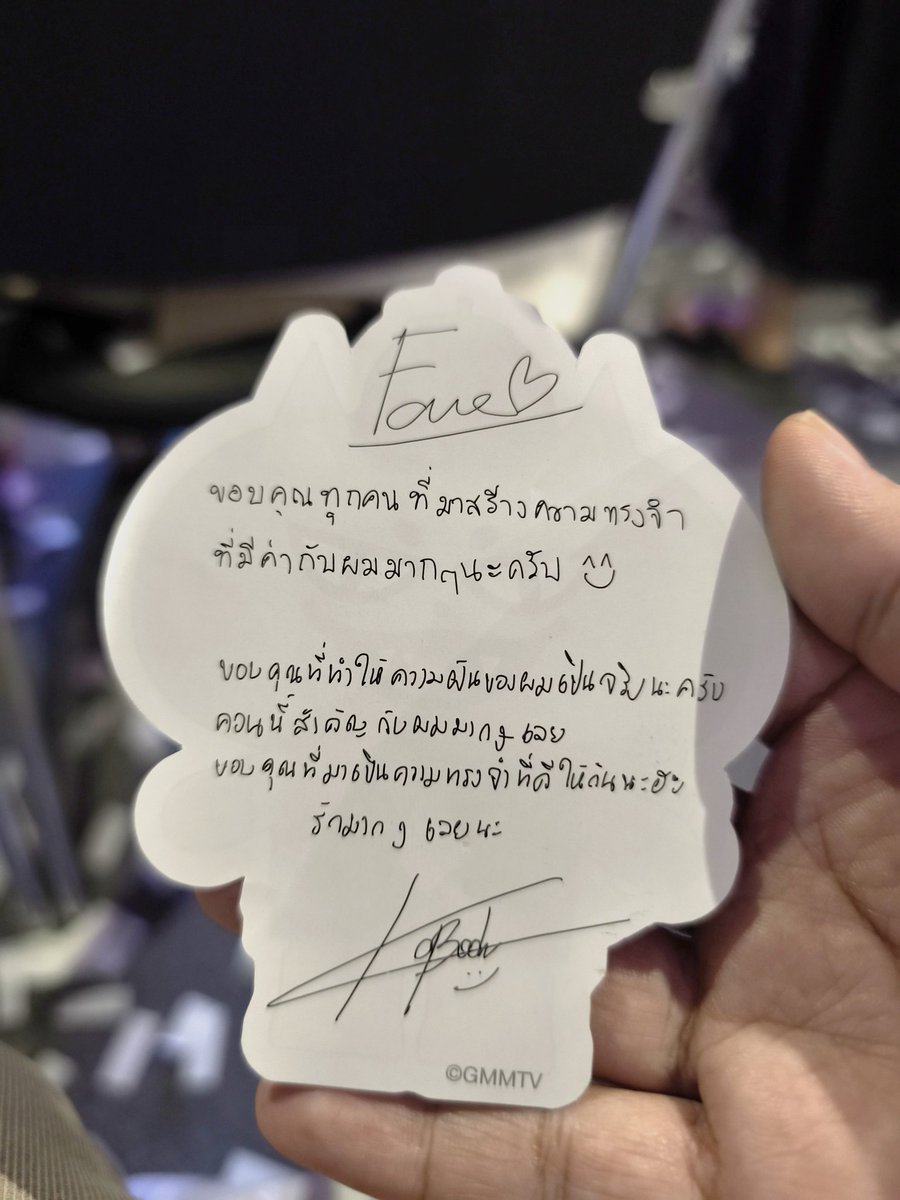 Force♡
ขอบคุณทุกคนที่มาสร้างความทรงจำ
ที่มีค่ากับผมมากๆนะครับ
ขอบคุณที่ทำให้ความฝันของผมเป็นจริงนะครับ
คอนนี้สำคัญกับผมมากๆเลย
ขอบคุณที่มาเป็นความทรงจำที่ดีให้กันนะฮะ
รักมากๆเลยนะ
©GMMTV